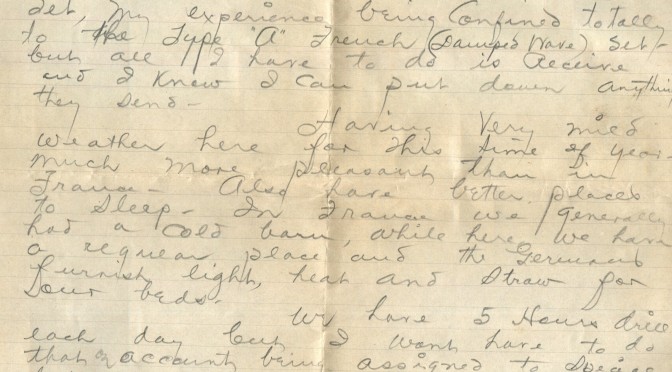 set, my experience being Confined totally
to the Type "A" French (Damped Wave) Set-
but all I have to do is Receive
and I Know I Can put down anything
they send-
Having Very mild
weather here for this time of year-
much more pleasant than in
France- Also have better places
to Sleep- In France we generally
had a cold barn, while here we have
a regular place and the Germans
furnish light, heat and Straw for
our beds-
We have 5 Hours drill
each day but I wont have to do
that on account being assigned to